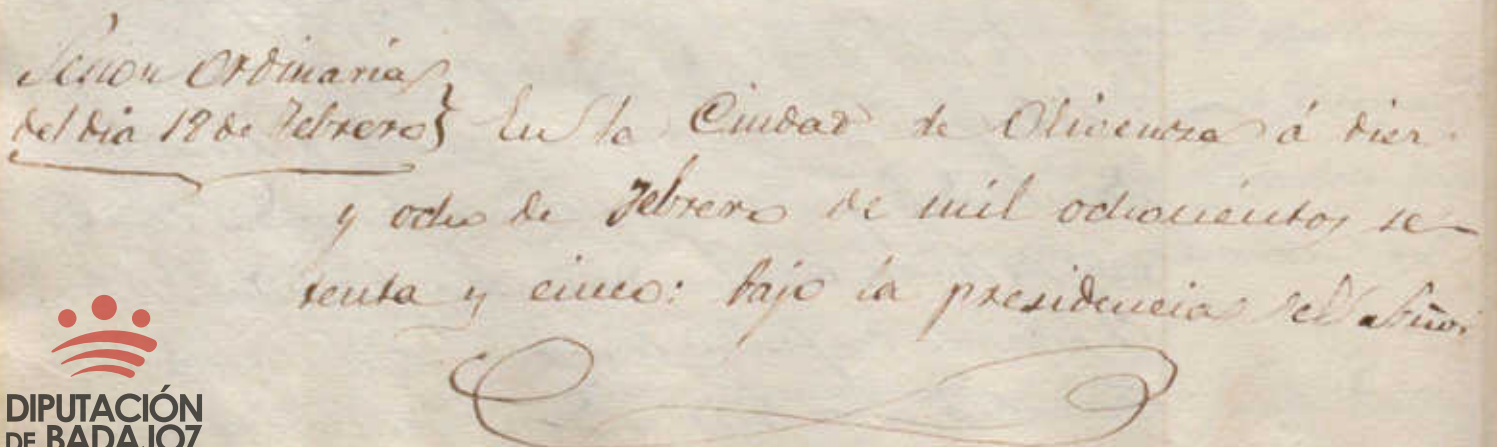 Sesion Ordinaria
del dia 18 de Febrero} En la Ciudad de Olivenza á diez
y ocho de Febrero de mil ochocientos se-
tenta y cinco: bajo la presidencia del Señor
DIPUTACIÓN
DE BADAJOZ